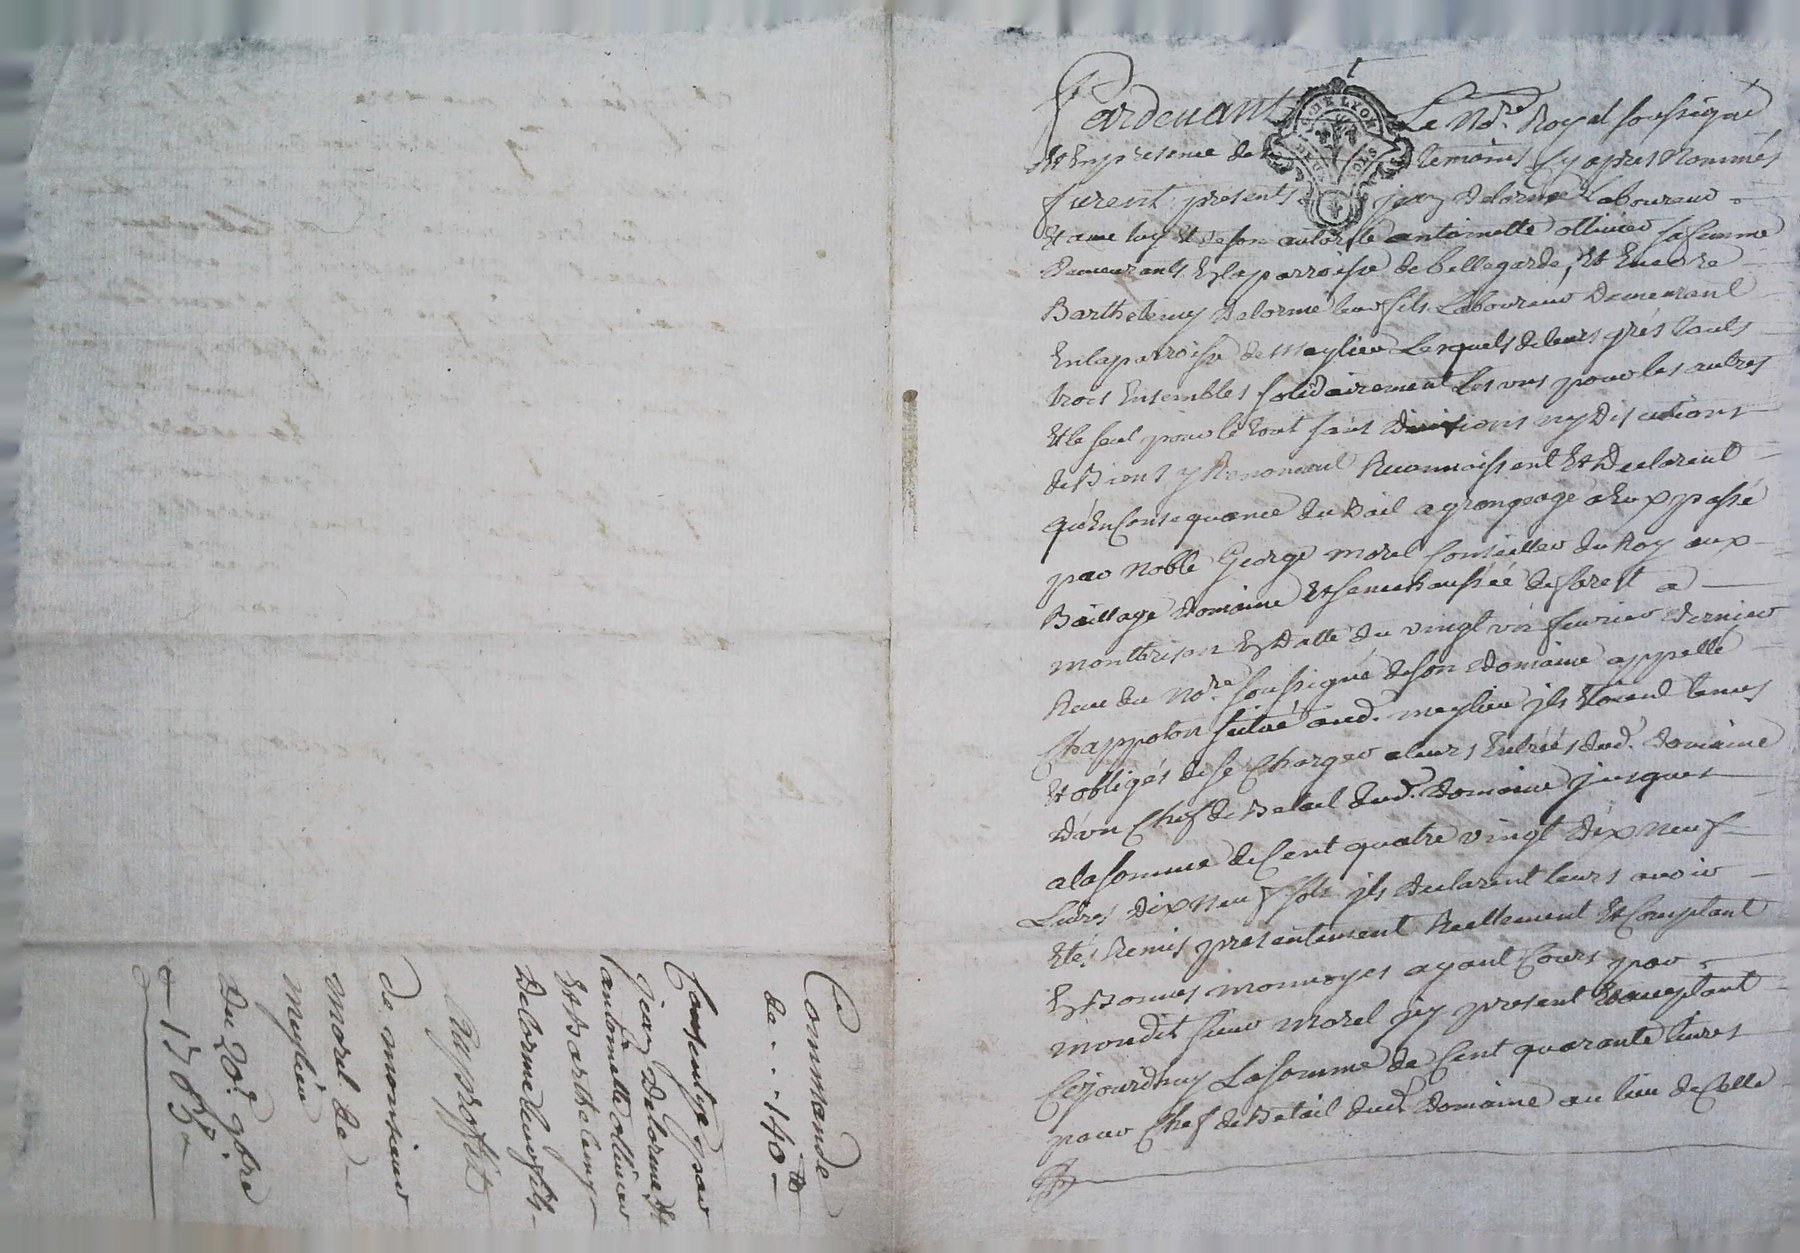 Pardevant Le No.re Royal soussigné
Et En presence des temoins Cy apres Nommés
furent presents jean Delorme Laboureur
Et avec luy Et de son autorité antoinette ollivier sa femme
Demeurants En la parroisse de bellegarde, Et Encore
Barthelemy Delorme leur fils Laboureur Demeurant
En la parroisse de Meylieu Lesquels de leurs grés touts
trois Ensembles solidairement Les uns pour les autres
Et le seul pour le tout sans Divisions ny Discutions
de Biens y Renoncant Reconnoissent Et Declarent
qu'En Consequance du Bail a grangeage a Eux passé
par Noble George Morel Conseiller du Roy aux
Baillage Domaine Et senechaussée de forest a
montbrison En Datte du vingt six fevrier Dernier
Receu du No.re soussigné de son Domaine appellé
Chappolon situé aud. meylieu jls Etoient tenus
Et obligés de se Charger a leurs Entrées dud. Domaine
D'un Chef de Betail dud. Domaine jusques
a la somme de Cent quatre vingt Dix neuf
Livres Dix neuf sols jls Declarent leurs avoir
Eté Remis presentement Reellement Et Comptant
En Bonnes monnoyes ayant Cours par
mondit sieur Morel jcy present Et acceptant
Cejourdhuy La somme de Cent quarante livres
pour Chef de Betail dud. Domaine au lieu de Celle
G. DE LYON
DEUX SOLS
Commande
de . . . 140 ₶
Consentye par
jean Delorme Et
antoinette ollivier
Et Barthelemy
Delorme leur fils
Au proffit
de monsieur
Morel de
meylieu
Du 20.e 9bre
1785